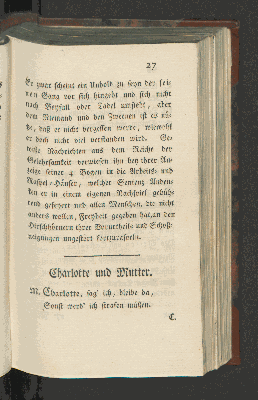 27
Er zwar scheint ein Unhold zu seyn der sei-
nen Gang vor sich hingeht und sich nicht
nach Beyfall oder Tadel umsieht, aber
dem Niemand und den Zweenen ist es nü-
tze, daß er nicht vergessen werde, wiewohl
er doch nicht viel verstanden wird. Ge-
wisse Nachrichten aus dem Reiche der
Gelehrsamkeit verwiesen ihn bey ihrer An-
zeige seiner 4 Bogen in die Arbeits- und
Raspel-Häuser, welcher Sentenz Anden-
ken er in einem eigenen Nachspiel gebüh-
rend gefeyert und allen Menschen, die nicht
anders wollen, Freyheit gegeben hat, an den
Hirschhörnern ihrer Vorurtheils- und Schooß-
neigungen ungestört fortzuraspeln.
Charlotte und Mutter.
M. Charlotte, sag' ich, bleibe da,
Sonst werd' ich strafen müssen.
C.